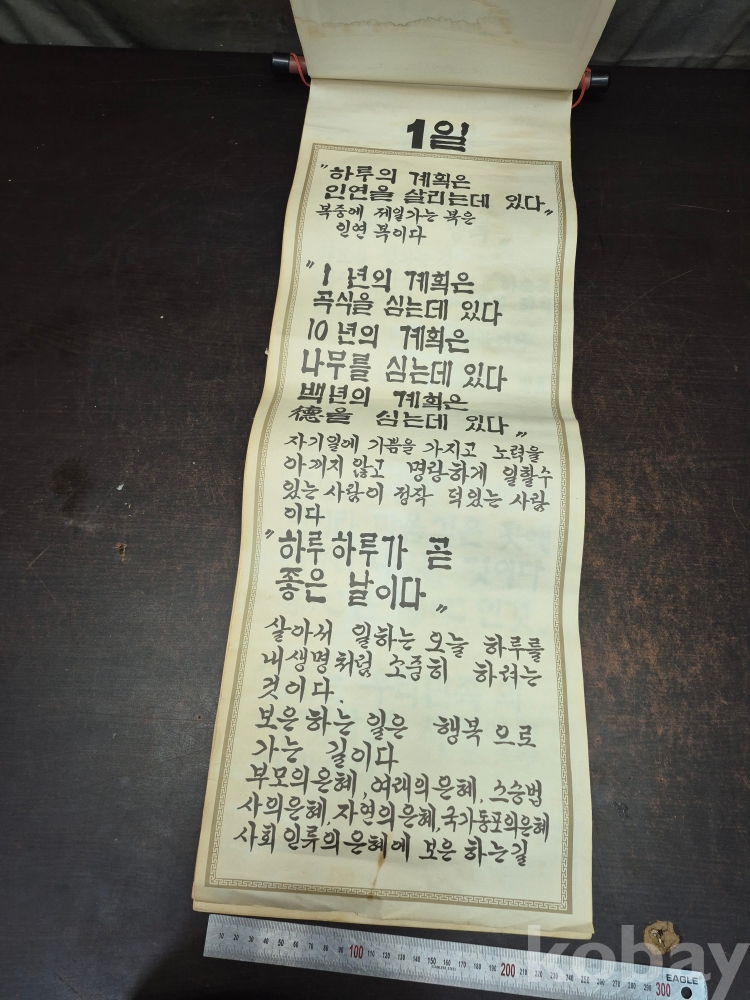 1일
"하루의 계획은
인연을 살리는데 있다"
복중에 제일가는 복은
인연 복이다
"1년의 계획은
곡식을 심는데 있다
10년의 계획은
나무를 심는데 있다
백년의 계획은
德을 심는데 있다"
자기일에 기쁨을 가지고 노력을
아끼지 않고 명랑하게 일할수
있는 사람이 정작 덕있는 사람
이다
"하루하루가 곧
좋은 날이다"
살아서 일하는 오늘 하루를
내생명처럼 소중히 하려는
것이다.
보은하는 일은 행복으로
가는 길이다
부모의은혜, 여래의은혜, 스승법
사의은혜, 자연의은혜, 국가동포의은혜
사회인류의은혜에 보은하는길
10 20 30 40 50 60 70 80 90 100 110 120 130 140 150 160 170 180 190 200 210 220 230 240 250 260 270 280 290 300
STAINLESS STEEL
EAGLE
kobay